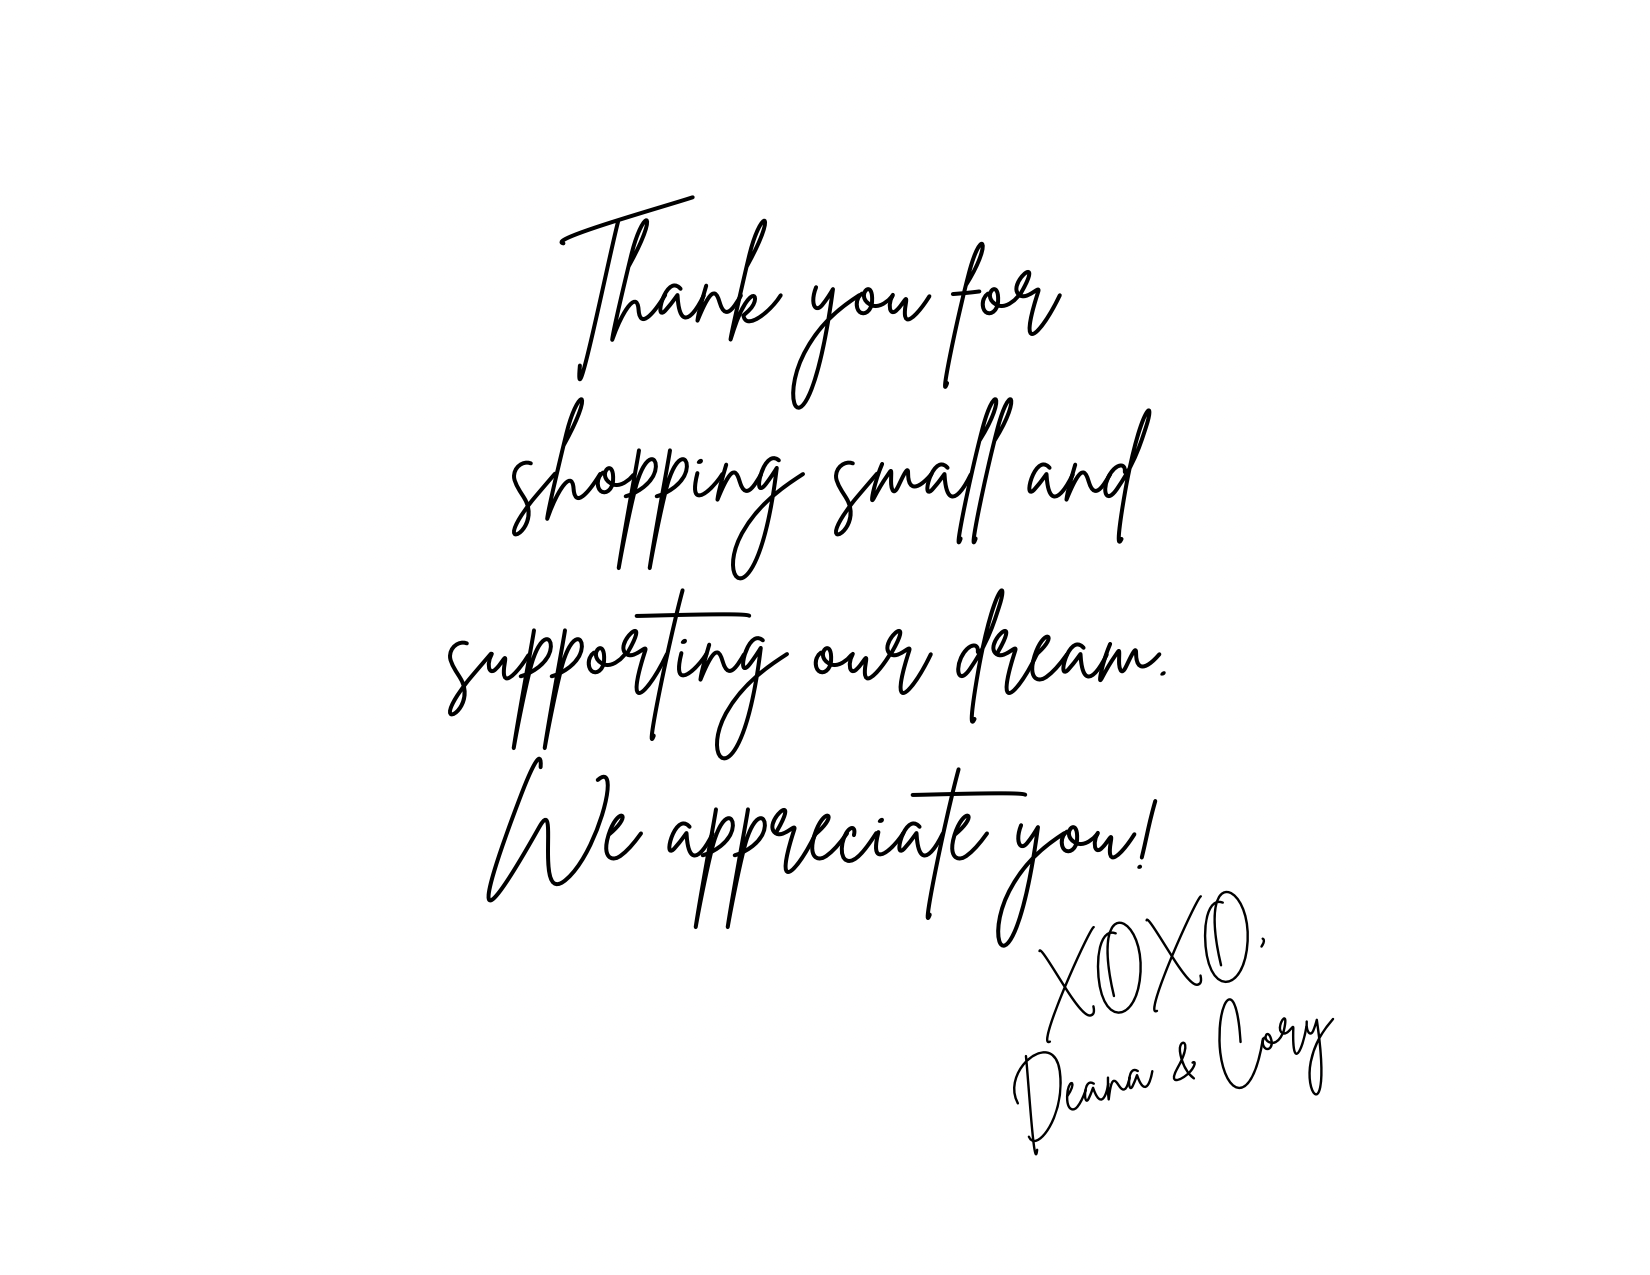 Thank you for
shopping small and
supporting our dream.
We appreciate you!
XOXO,
Deana & Cory